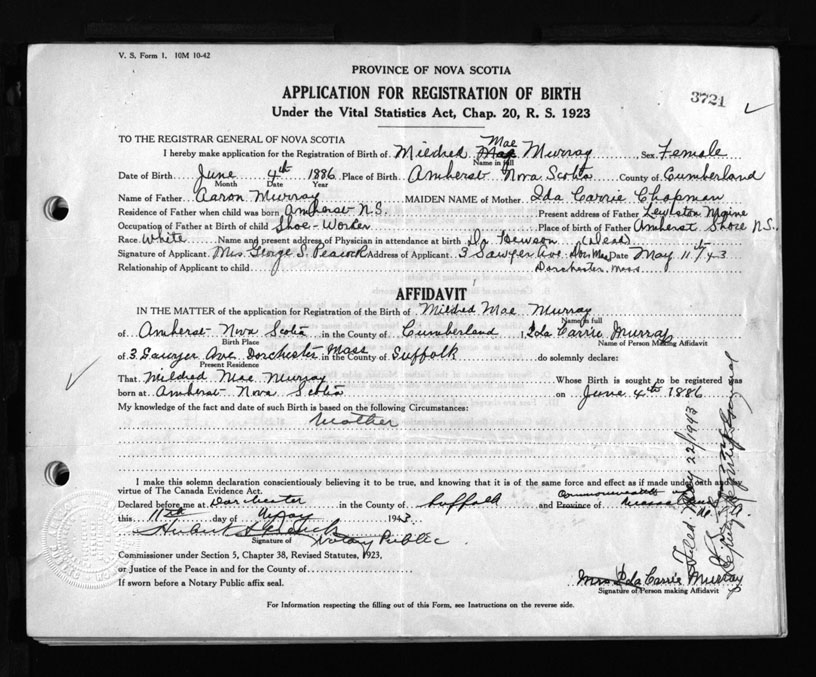 V. S. Form 1. 10M 10-42
PROVINCE OF NOVA SCOTIA
APPLICATION FOR REGISTRATION OF BIRTH
3721
Under the Vital Statistics Act, Chap. 20, R. S. 1923
TO THE REGISTRAR GENERAL OF NOVA SCOTIA
I hereby make application for the Registration of Birth of Mildred Mae Murray Sex Female
Name in full
Date of Birth June 4th 1886 Place of Birth Amherst Nova Scotia County of Cumberland
Month Date Year
Name of Father Aaron Murray MAIDEN NAME of Mother Ida Carrie Chapman
Residence of Father when child was born Amherst N.S. Present address of Father Lewiston Maine
Occupation of Father at Birth of child Shoe-Worker Place of birth of Father Amherst Shore N.S.
Race White Name and present address of Physician in attendance at birth Dr Hewson (Dead)
Signature of Applicant Mrs. George S. Peacock Address of Applicant 3 Sawyer Ave. Dor. Mass Date May 11th/43
Relationship of Applicant to child Dorchester, Mass
AFFIDAVIT
IN THE MATTER of the application for Registration of the Birth of Mildred Mae Murray
Name in full
of Amherst Nova Scotia in the County of Cumberland I, Ida Carrie Murray
Birth Place Name of Person Making Affidavit
of 3 Sawyer Ave Dorchester Mass in the County of Suffolk do solemnly declare:
Present Residence
That Mildred Mae Murray Whose Birth is sought to be registered was
born at Amherst Nova Scotia on June 4th 1886
My knowledge of the fact and date of such Birth is based on the following Circumstances:
Mother
I make this solemn declaration conscientiously believing it to be true, and knowing that it is of the same force and effect as if made under oath and by
virtue of The Canada Evidence Act.
Commonwealth
Declared before me at Dorchester in the County of Suffolk and Province of
this 11th day of May 1943
Signature of Notary Public
Commissioner under Section 5, Chapter 38, Revised Statutes, 1923,
or Justice of the Peace in and for the County of
If sworn before a Notary Public affix seal.
Mrs Ida Carrie Murray
Signature of Person making Affidavit
For Information respecting the filling out of this Form, see Instructions on the reverse side.
Filed May 22/1943
Deputy Registrar General